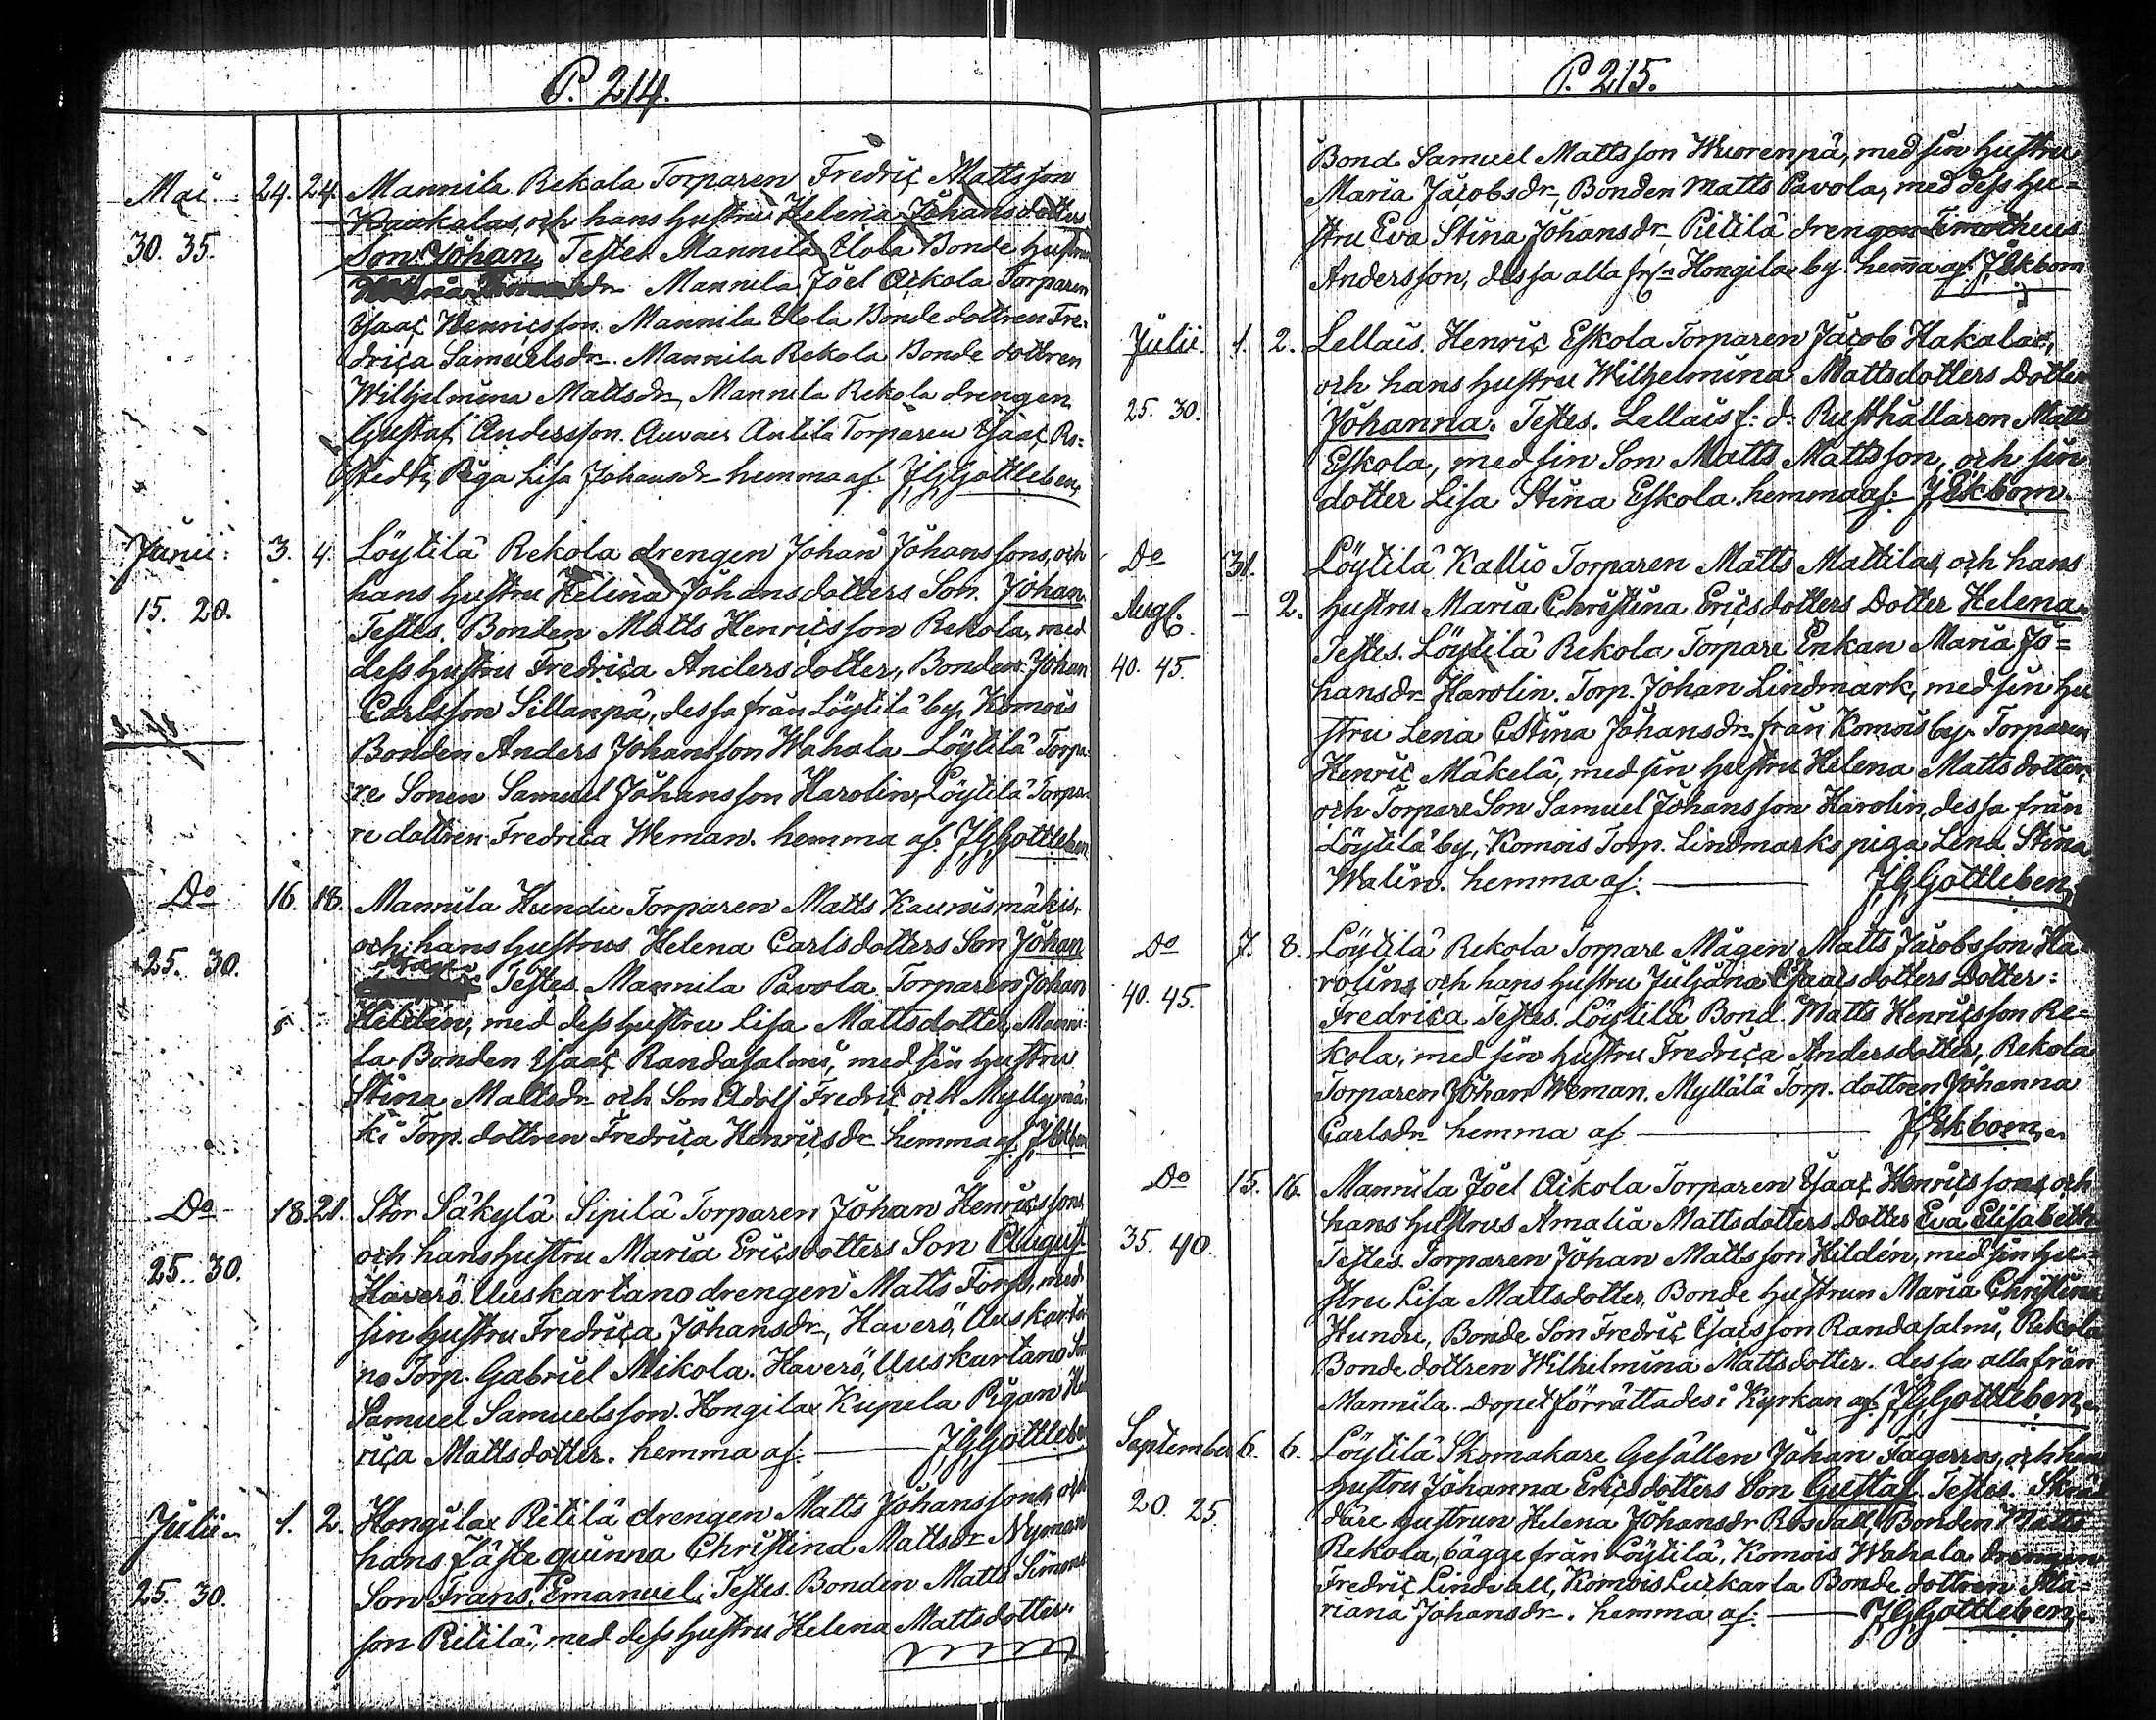 P. 214.
Mai 24. 24. Mannila Rekola Torparen Fredric Mattsson
Kaukalas, och hans hustru Helena Johansdotters
30. 35. Son Johan. Testes Mannila Uola Bonde hustrun
dr Mannila Joel Aickola Torparen
Ysaac Henricsson. Mannila Uola Bonde dottren Fre-
drica Samuelsdr. Mannila Rekola Bonde dottren
Wilhelmina Mattsdr, Mannila Rekola drengen
Gustaf Andersson. Auvais Antila Torparen Ysaac Ro-
stedt, Piga Lisa Johansdr hemma af: JGGottleben,
Junii: 3. 4. Löytilä Rekola drengen Johan Johanssons, och
hans hustru Helena Johansdotters Son. Johan
15. 20. Testes. Bonden Matts Henricsson Rekola, med
dess hustru Fredrica Andersdotter, Bonden Johan
Carlsson Sillanpä, dessa från Löytilä by, Komois
Bonden Anders Johansson Wahala Löytilä Torpa-
re Sonen Samuel Johansson Harolin, Löytilä Torpa-
re dottren Fredrica Weman. hemma af: JGGottleben
Do 16. 18. Mannila Hundu Torparen Matts Kaunismäkis,
och hans hustrus Helena Carlsdotters Son Johan
25. 30. Testes. Mannila Pavola Torparen Johan
Hildén, med dess hustru Lisa Mattsdotter, Manni-
la Bonden Ysaac Randasalmi, med sin hustru
Stina Mattsdr och Son Adolf Fredric och Myllymä-
ki Torp. dottren Fredrica Henricsdr hemma af. JEkbom
Do 18. 21. Stor Säkylä Sipilä Torparen Johan Henricssons,
och hans hustru Maria Ericsdotters Son August
25. 30. Haverö Uuskartano drengen Matts Forss, med
sin hustru Fredrica Johansdr, Haverö, Uuskarta-
no Torp. Gabriel Mikola. Haverö, Uuskartano
Samuel Samuelsson. Hongilax Kupela Pigan
rica Mattsdotter. hemma af: JGGottleben
Julii 1. 2. Hongilax Ritilä drengen Matts Johanssons, och
hans fäste quinna Christina Mattsdr Nyman
25. 30. Son Frans Emanuel. Testes. Bonden Matts Simons-
son Ritilä, med dess hustru Helena Mattsdotter.
P. 215.
Bond. Samuel Mattsson Wuorenpä, med sin hustru
Maria Jacobsdr, Bonden Matts Pavola, med dess hu-
stru Eva Stina Johansdr, Ritilä drengen Timotheus
Andersson, dessa alla från Hongilax by. hemma af: JEkbom
Julii. 1. 2. Lellais. Henric Eskola Torparen Jacob Hakalax,
och hans hustru Wilhelmina Mattsdotters Dotter
25. 30. Johanna. Testes. Lellais f. d. Rusthållaren Matts
Eskola, med sin Son Matts Mattsson, och sin
dotter Lisa Stina Eskola. hemma af: JEkbom.
Do 31. Löytilä Kallio Torparen Matts Mattilas, och hans
Aug. 2. hustru Maria Christina Ericsdotters Dotter Helena.
Testes. Löytilä Rekola Torpare Enkan Maria Jo-
40. 45. hansdr Harolin. Torp. Johan Lindmark, med sin hu-
stru Lena Stina Johansdr från Komois by. Torparen
Henric Mäkelä, med sin hustru Helena Mattsdotter,
och Torpare Son Samuel Johansson Harolin, dessa från
Löytilä by, Komois Torp. Lindmarks piga Lena Stina
Walin. hemma af: JGGottleben,
Do 7. 8. Löytilä Rekola Torpare Mågen Matts Jacobsson Ha-
rolins, och hans hustru Juljana Ysaacsdotters Dotter:
40. 45. Fredrica Testes. Löytilä Bond. Matts Henricsson Re-
kola, med sin hustru Fredrica Andersdotter, Rekola
Torparen Johan Weman. Myllälä Torp. dottren Johanna
Carlsdr hemma af JEkbom,
Do 15. 16. Mannila Joel Aickola Torparen Ysaac Henricssons, och
hans hustrus Amalia Mattsdotters Dotter Eva Elisabeth
35. 40. Testes. Torparen Johan Mattsson Hildén, med sin hu-
stru Lisa Mattsdotter, Bonde hustrun Maria Christina
Hundu, Bonde Son Fredric Ysacsson Randasalmi, Rekola
Bonde dottren Wilhelmina Mattsdotter. dessa alla från
Mannila. Dopet förrättades i Kyrkan af: JGGottleben,
September 6. 6. Löytilä Skomakare Gesällen Johan Fagerros, och hans
hustrus Johanna Ericsdotters Son Gustaf. Testes. Skräd-
20. 25. dare hustrun Helena Johansdr Rosvall, Bonden Matts
Rekola, bägge från Löytilä, Komois Wahala drengen
Fredric Lindvall, Komois Luckarla Bonde dottren Ma-
riana Johansdr. hemma af: JGGottleben,